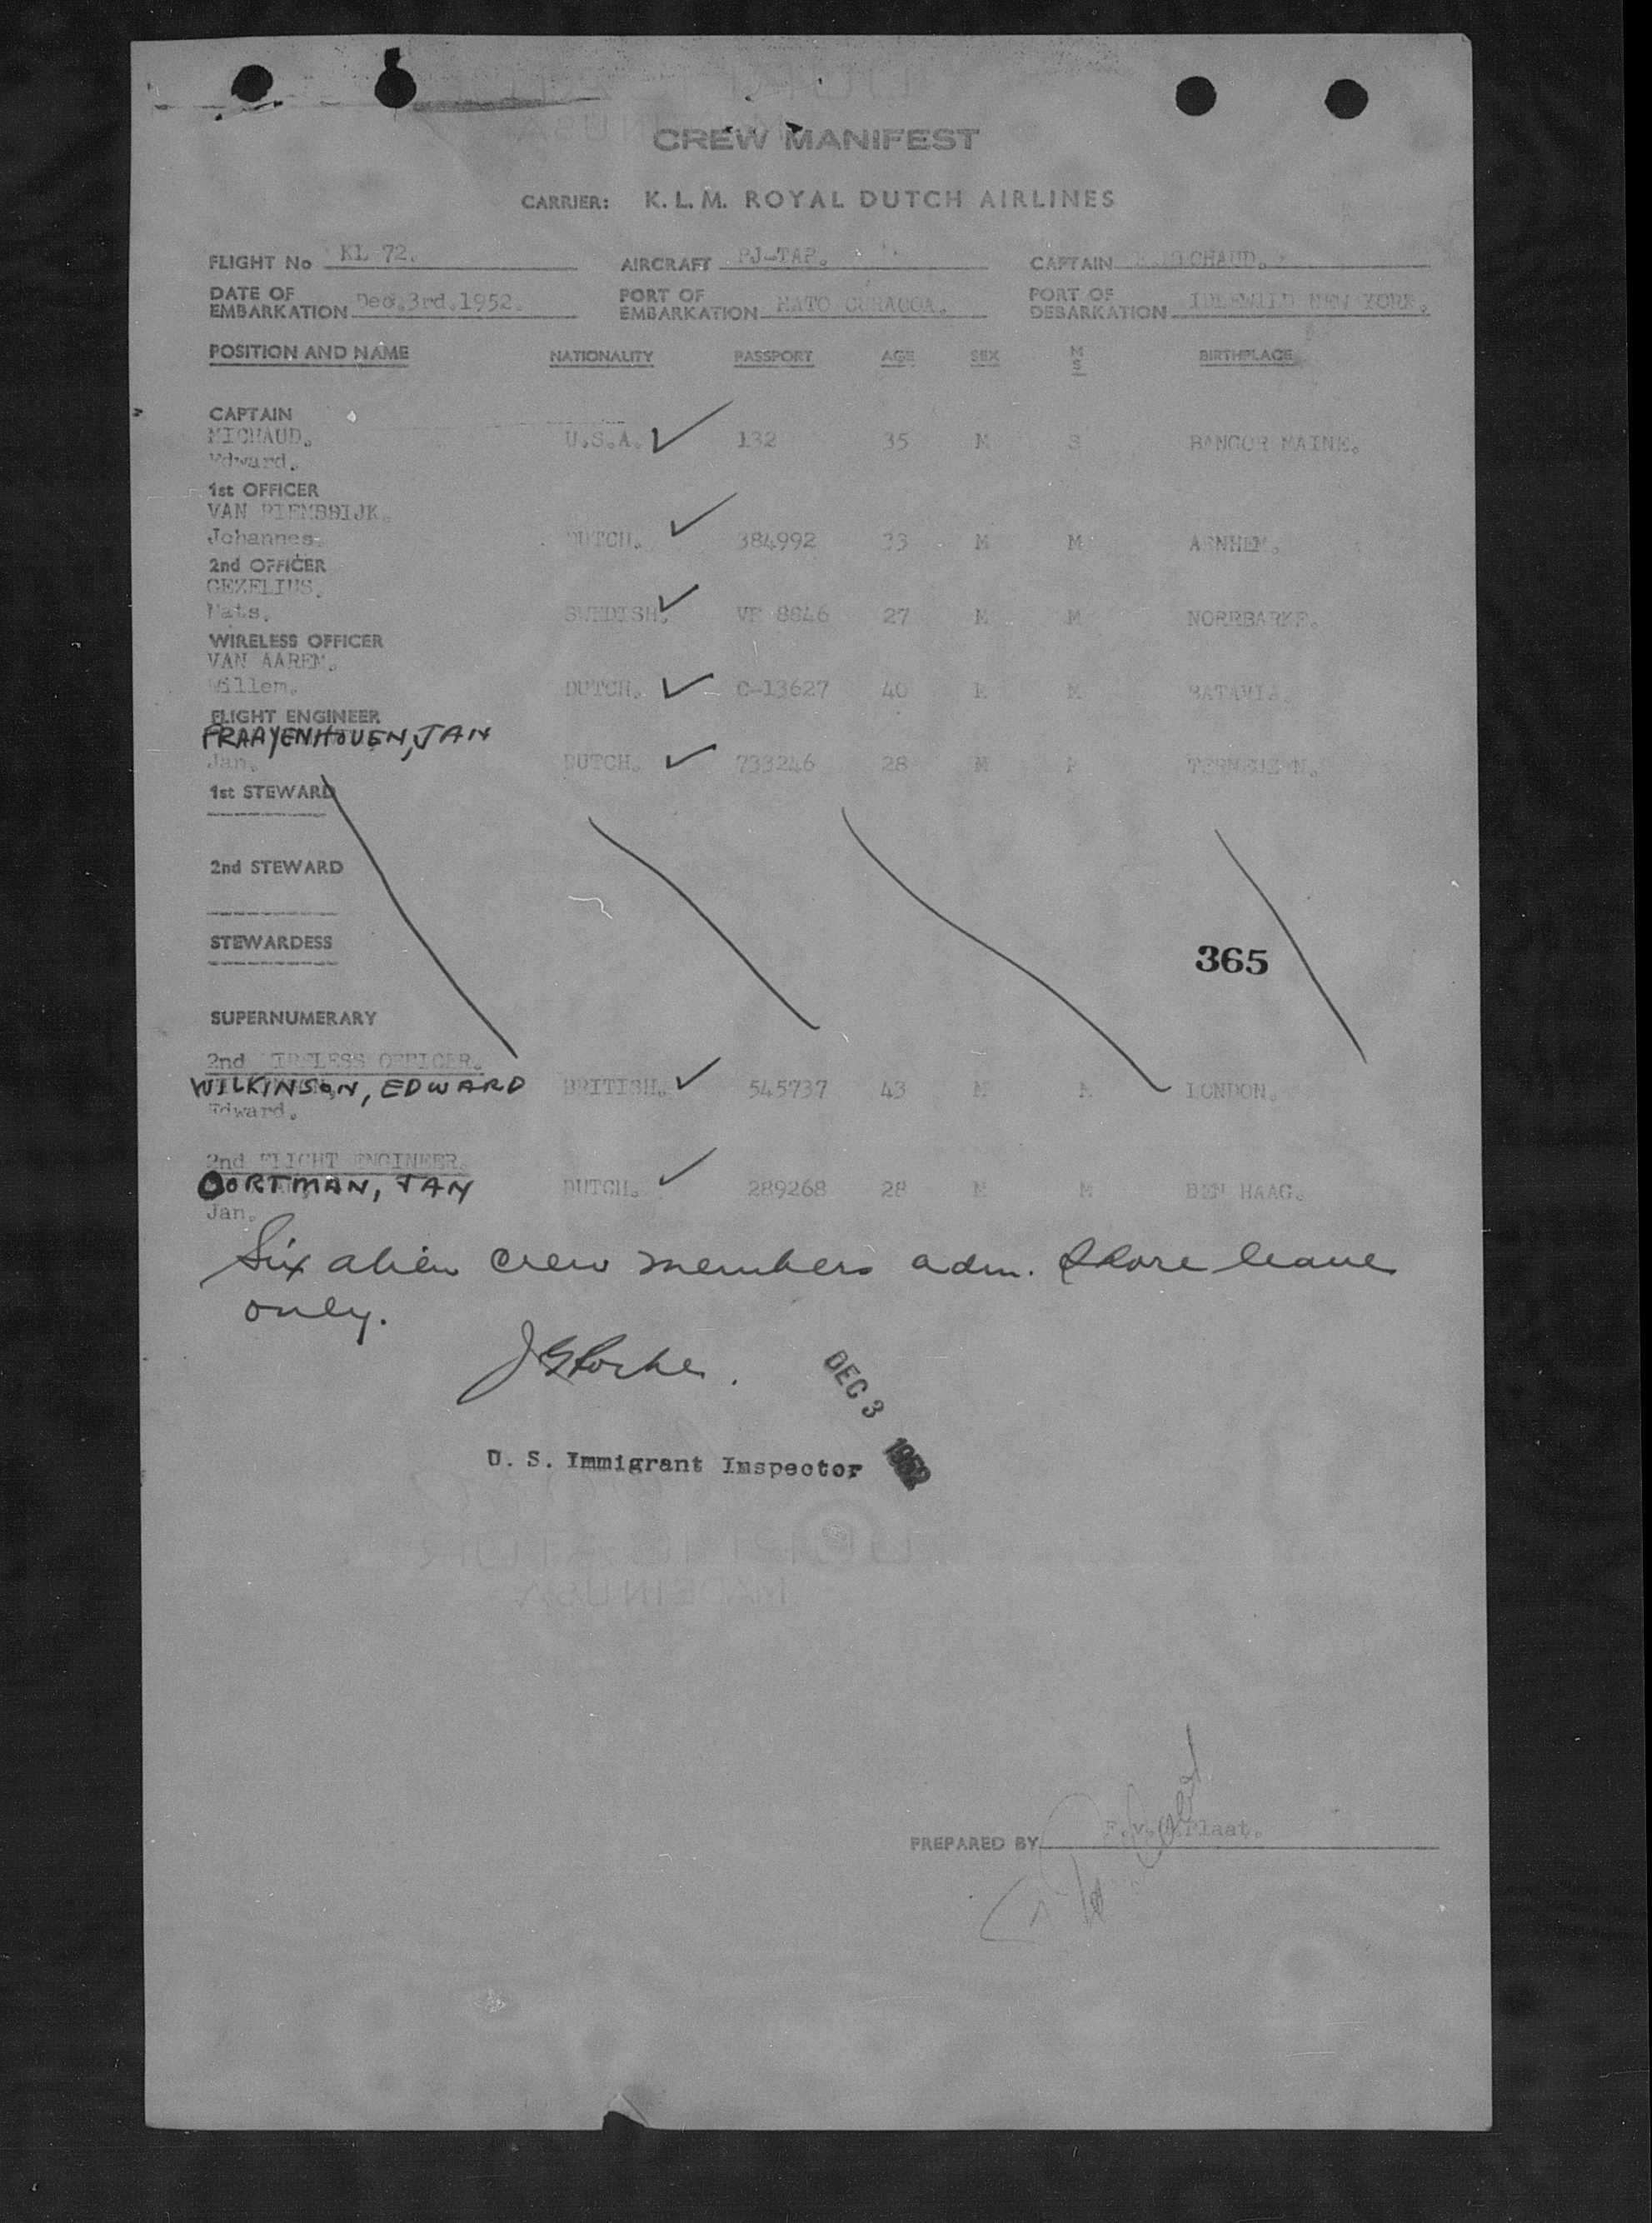 CREW MANIFEST
CARRIER: K. L. M. ROYAL DUTCH AIRLINES
FLIGHT No KL 72. AIRCRAFT PJ-TAP. CAPTAIN MICHAUD.
DATE OF EMBARKATION Dec.3rd.1952. PORT OF EMBARKATION HATO CURACOA. PORT OF DEBARKATION IDLEWILD NEW YORK.
POSITION AND NAME NATIONALITY PASSPORT AGE SEX M S BIRTHPLACE
CAPTAIN
MICHAUD. U.S.A. 132 35 M S BANGOR MAINE.
Edward.
1st OFFICER
VAN
Johannes. DUTCH. 384992 33 M M ARNHEM.
2nd OFFICER
GEZELIUS.
Mats. SWEDISH. VF 8846 27 M M NORRBARKE.
WIRELESS OFFICER
VAN AAREM.
Willem. DUTCH. C-13627 40 M BATAVIA.
FLIGHT ENGINEER
FRAAYENHOVEN, JAN
Jan. DUTCH. 733246 28 M
1st STEWARD
2nd STEWARD
STEWARDESS
365
SUPERNUMERARY
2nd WIRELESS OFFICER.
WILKINSON, EDWARD BRITISH. 545737 43 M M LONDON.
Edward.
2nd FLIGHT ENGINEER.
OORTMAN, JAN DUTCH. 289268 28 M M DEN HAAG.
Jan.
Six alien crew members adm. shore leave
only.
DEC 3 1952
U. S. Immigrant Inspector
PREPARED BY Plaat.
MADE IN USA